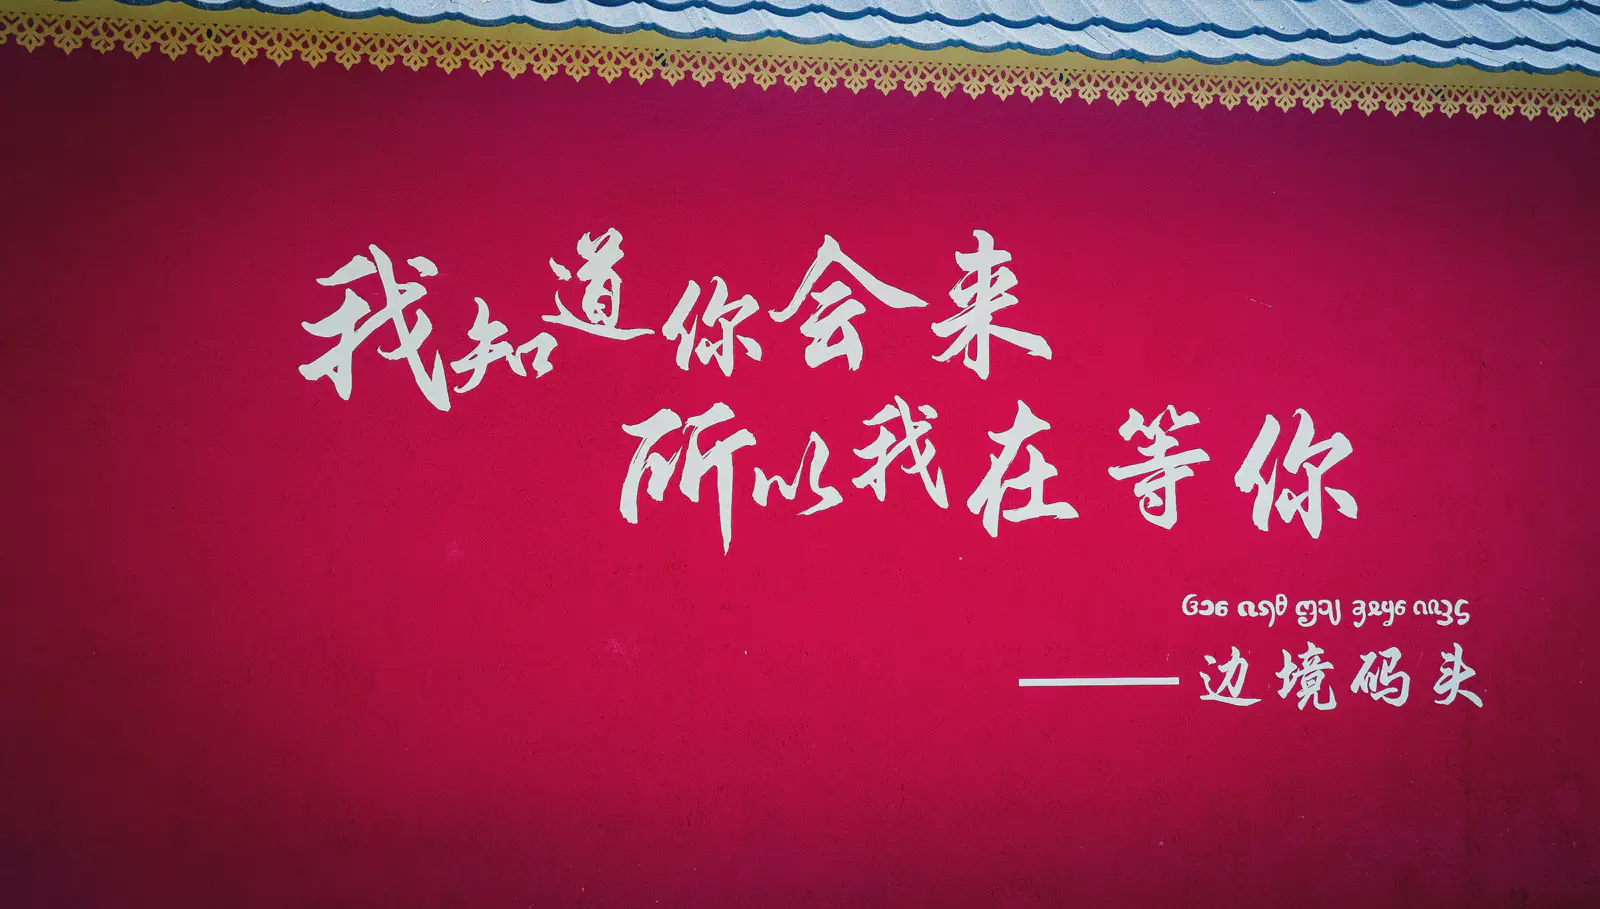 我知道你会来
所以我在等你
——边境码头